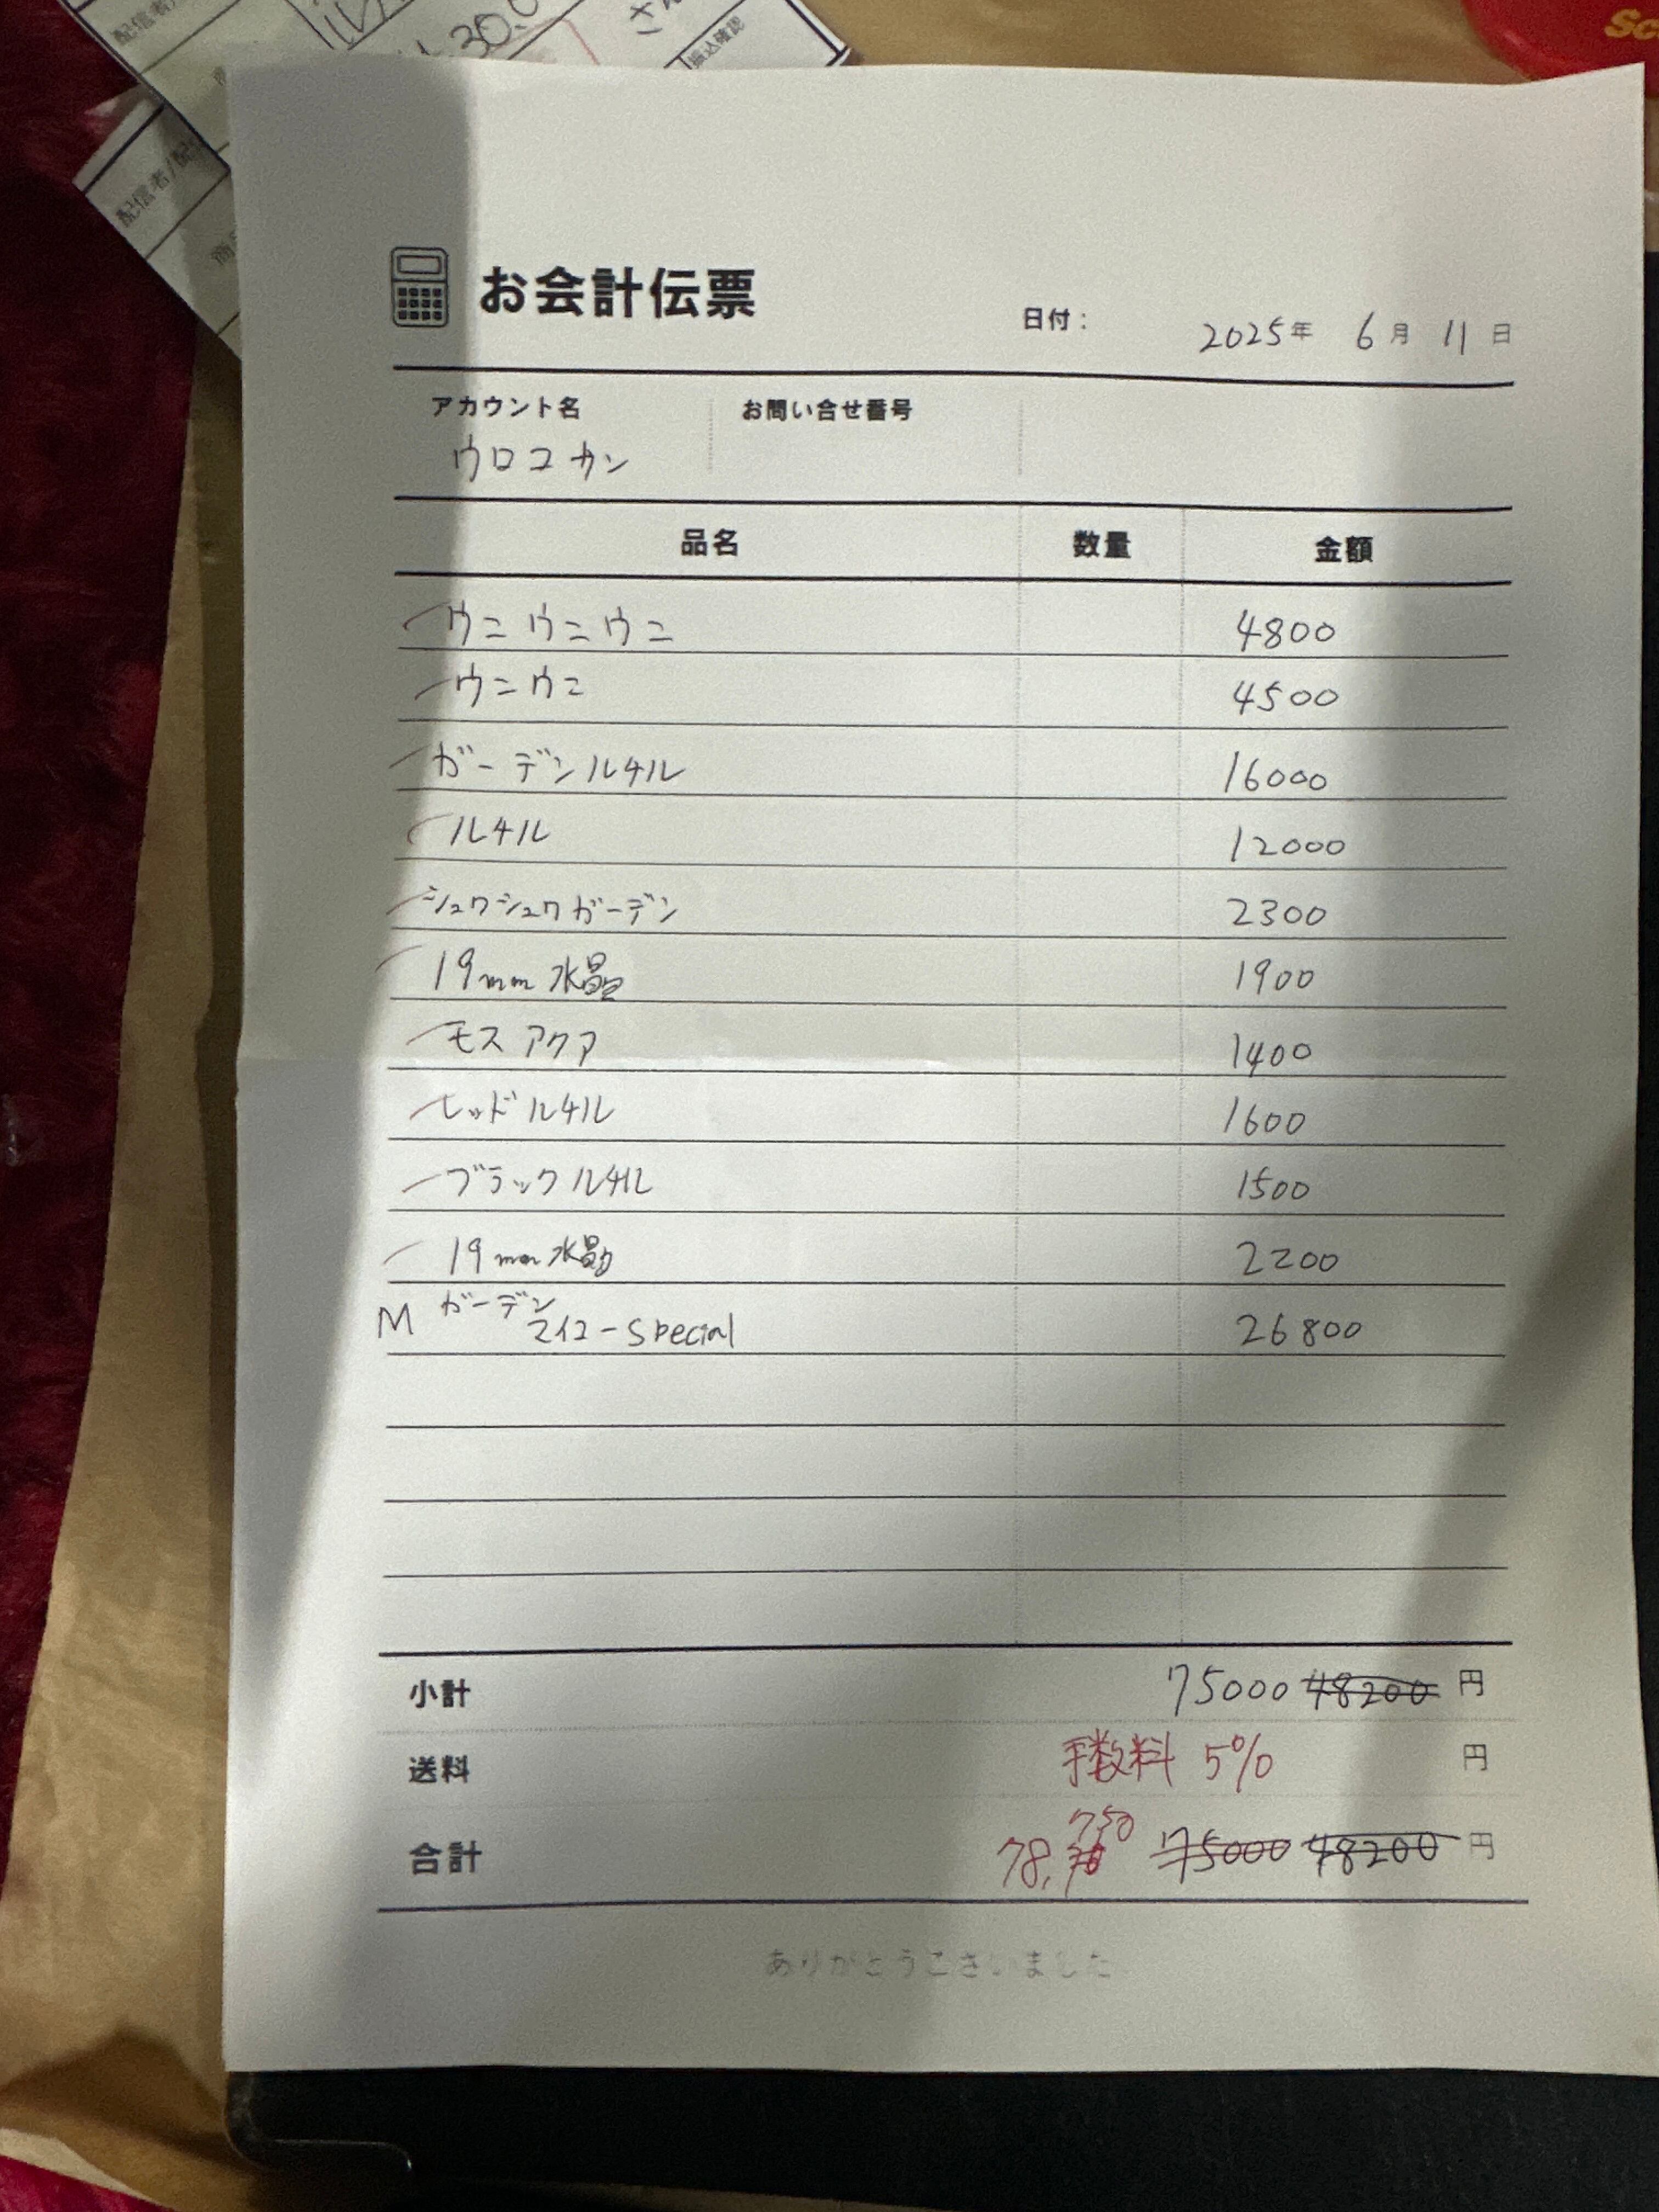 配信者
30.0
さん
振込確認
配信者/配信
商品
Sc
お会計伝票
日付： 2025年 6月 11日
アカウント名 お問い合せ番号
ウロコカン
品名 数量 金額
ウニウニウニ 4800
ウニウニ 4500
ガーデンルチル 16000
ルチル 12000
シュワシュワガーデン 2300
19mm 水晶 1900
モスアクア 1400
レッドルチル 1600
ブラックルチル 1500
19mm 水晶 2200
M ガーデン
マイコーSpecial 26800
小計 75000 48200 円
送料 手数料 5% 円
合計 78,750 75000 48200 円
ありがとうございました